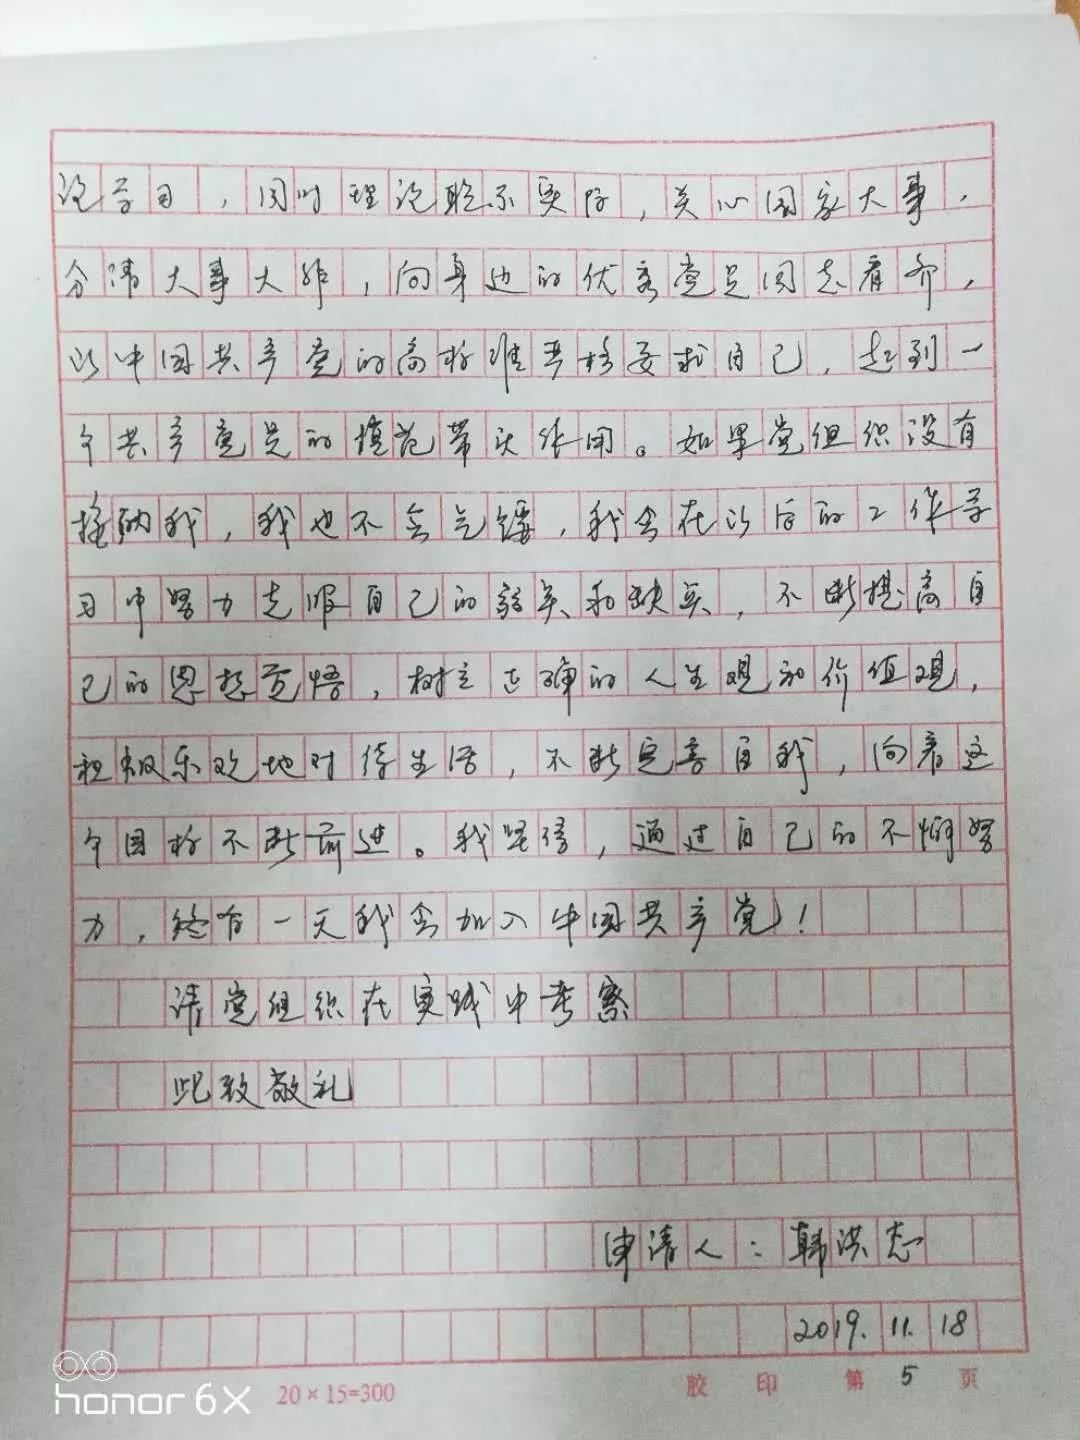 论学习，同时理论联系实际，关心国家大事，
分清大事大非，向身边的优秀党员同志看齐，
以中国共产党的高标准严格要求自己，起到一
个共产党员的模范带头作用。如果党组织没有
接纳我，我也不会气馁，我会在以后的工作学
习中努力克服自己的弱点和缺点，不断提高自
己的思想觉悟，树立正确的人生观和价值观，
积极乐观地对待生活，不断完善自我，向着这
个目标不断前进。我坚信，通过自己的不懈努
力，终有一天我会加入中国共产党！
请党组织在实践中考察
此致敬礼
申请人：韩洪志
2019.11.18
honor 6X
20×15=300 胶印 第5页